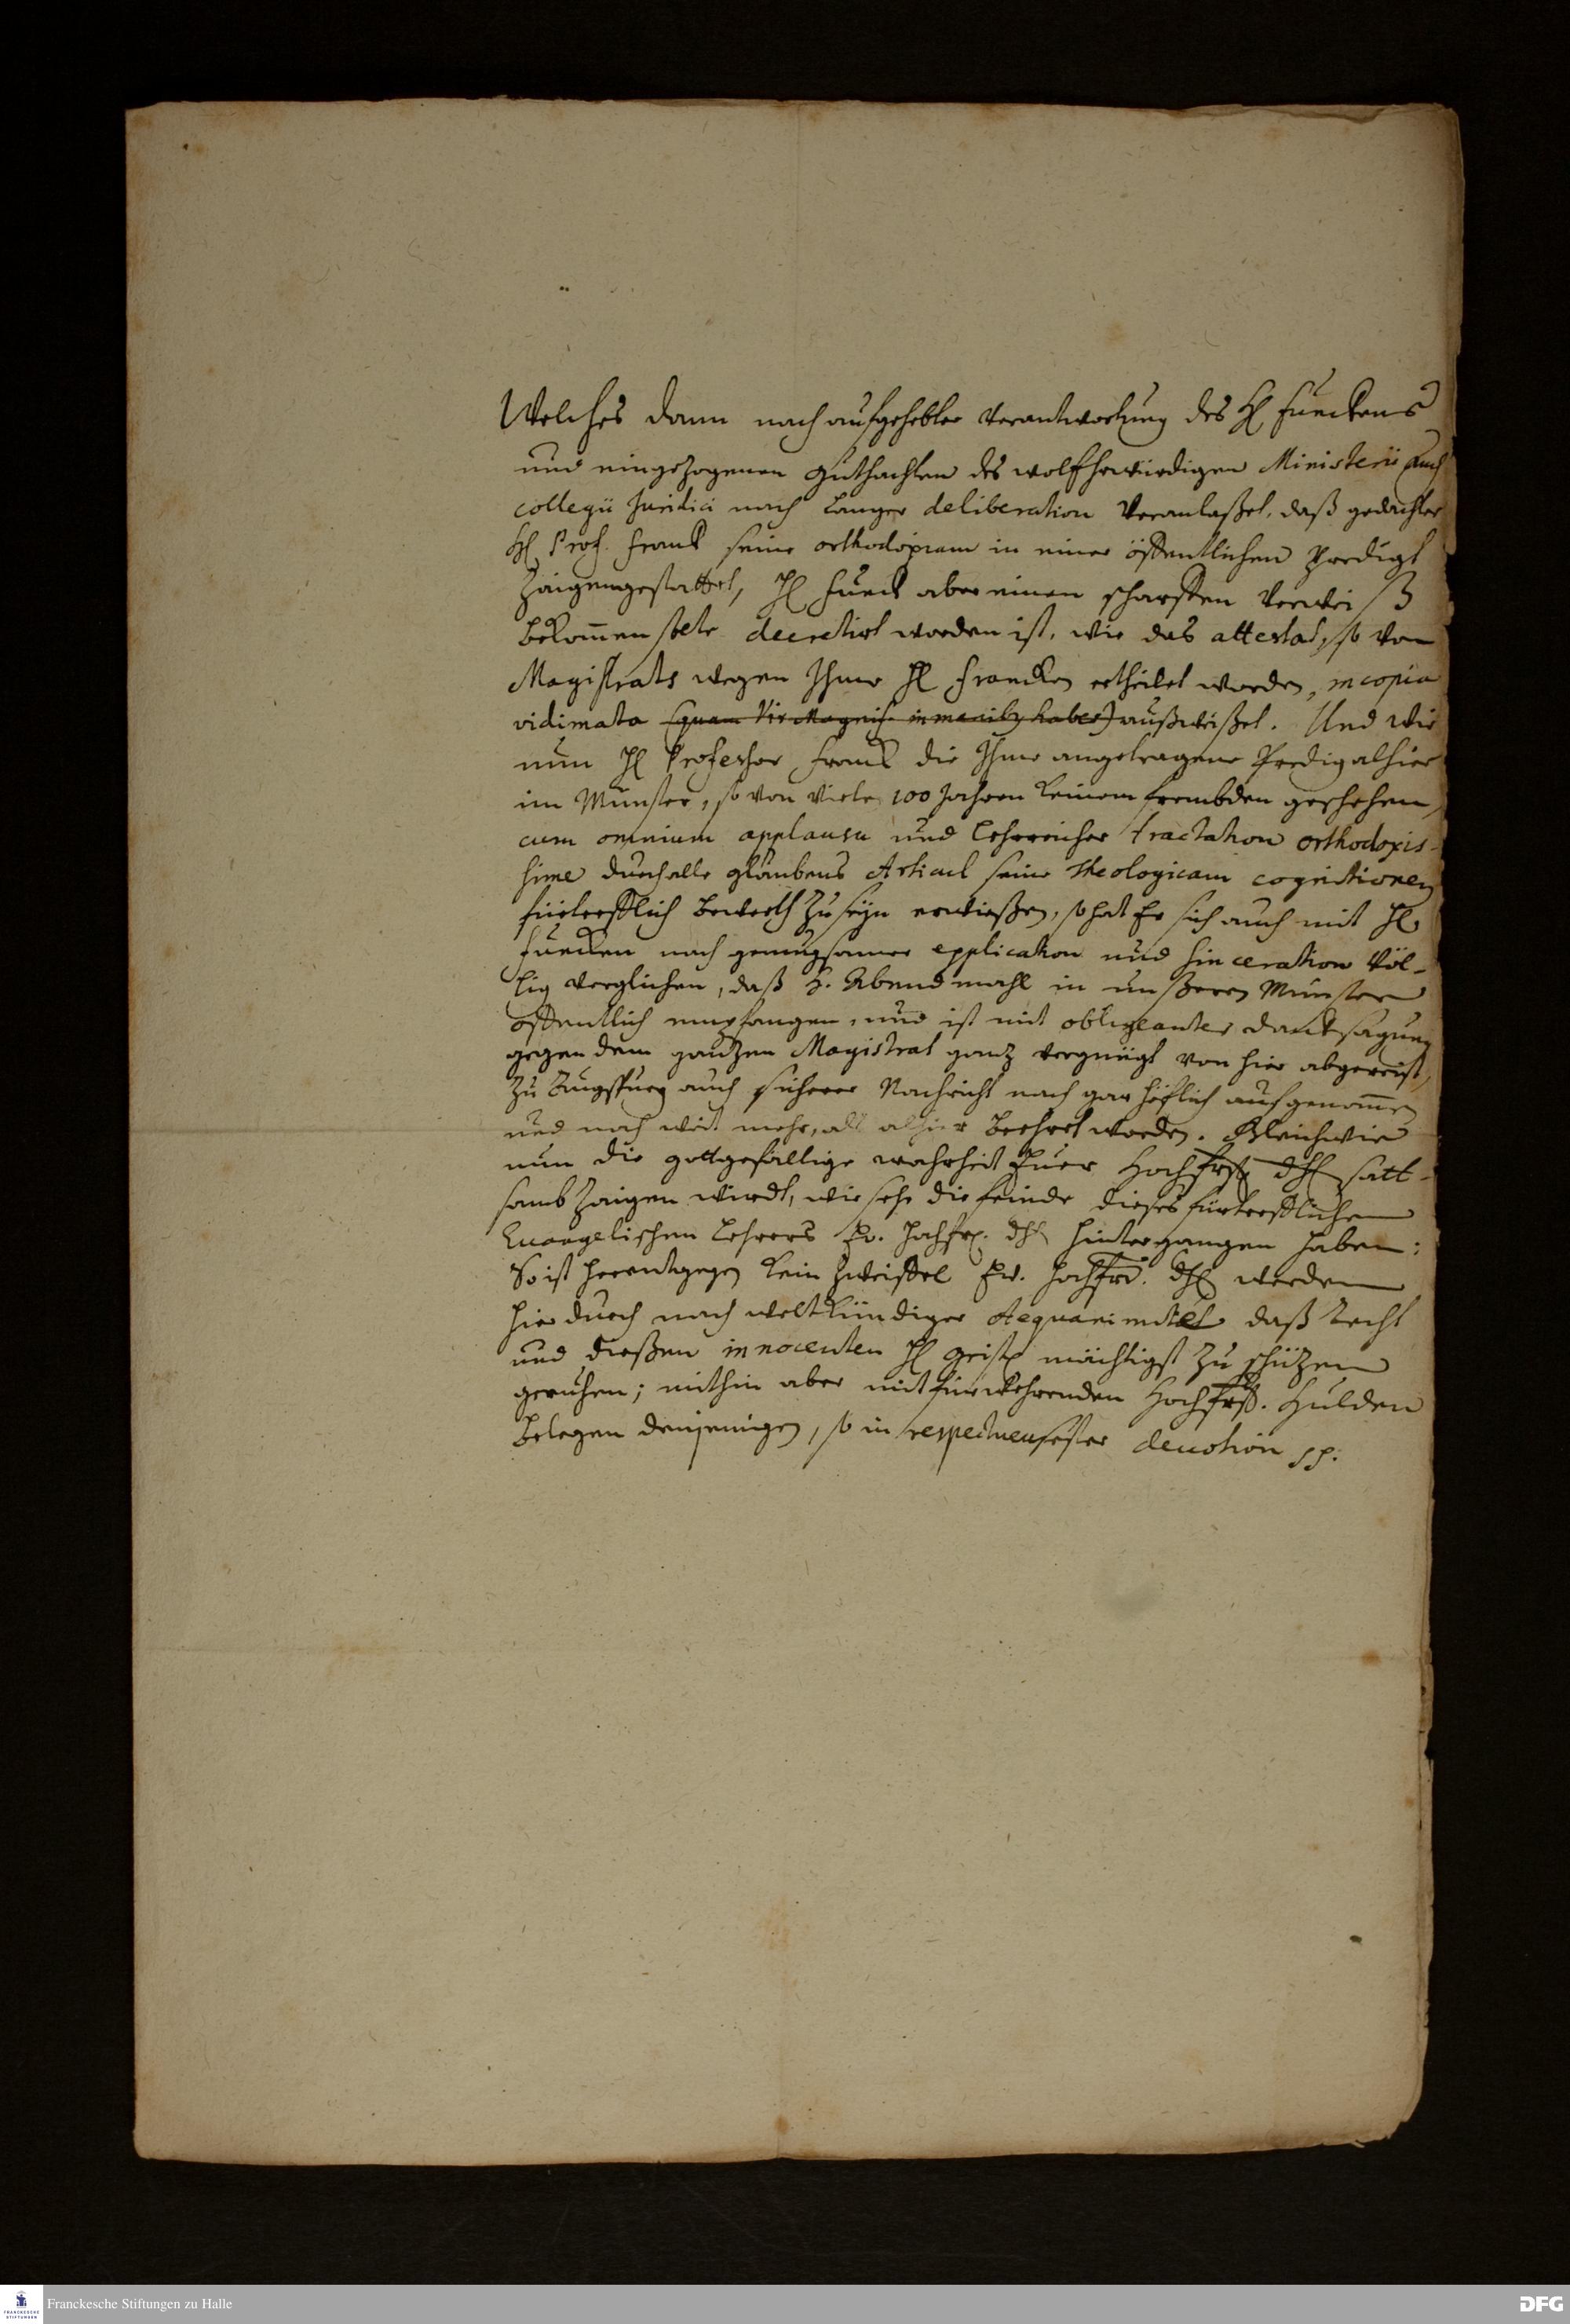 Welches dann nach aufgehebter verantwortung des Hl Funckens
und eingezogenen Guthachten des wolEhrwürdigen Ministerii auch
collegii Juridici nach langer deliberation veranlaßet, daß gedachter
Hl Prof. Franck seine orthodoxiam in einer öffentlichen Predigt
Zaigen gestattet, Hl Funck aber einen scharffen verweiß
bekom̄en solte decretirt worden ist, wie das attestat, so von
Magistrats wegen Ihme Hl Francken ertheilet worden, in copia
vidimata außweißet. Und wie
nun Hl Professor Franck die Ihme angetragene Predig alhier
im Münster, so von viele 100 Jahren keinem frembden geschehen,
cum omnium applausu und lehrreicher tractation orthodoxis-
sime durch alle glaubens Articul seine Theologicam cognitionem
fürtrefflich bewerth zu seyn erwießen, so hat Er sich auch mit Hl
Funcken nach genugsamer explication und sinceration völ-
lig verglichen, daß H. Abendmahl in unßerem Münster
öffentlich empfangen, und ist mit obligeanter dancksagung
gegen dem gantzen Magistrat gantz vergnügt von hier abgereist,
zu Augspurg auch sicherer Nachricht nach gar höflich aufgenom̄en
und noch weit mehr, als alhier beehret worden. Gleichwie
nun die gottgefällige wahrheit Euer Hochfrstl Dhl satt-
samb zaigen wirdt, wie sehr die feinde dieses fürtrefflichen
Evangelischen Lehrers Ew. Hochfr. Dhl hintergangen haben:
So ist herentgegen kein Zweiffel Ew. Hochfrd. Dhl werden
hierdurch nach weltkündiger Aequanimitet daß Recht
und dießen innocenten Hl Geistl mächtigst zu schützen
geruhen; mithin aber mit fürwehrenden Hochfrstl. Hulden
belegen denjenigen, so in respectueusester devotion pp.
Franckesche Stiftungen zu Halle
DFG